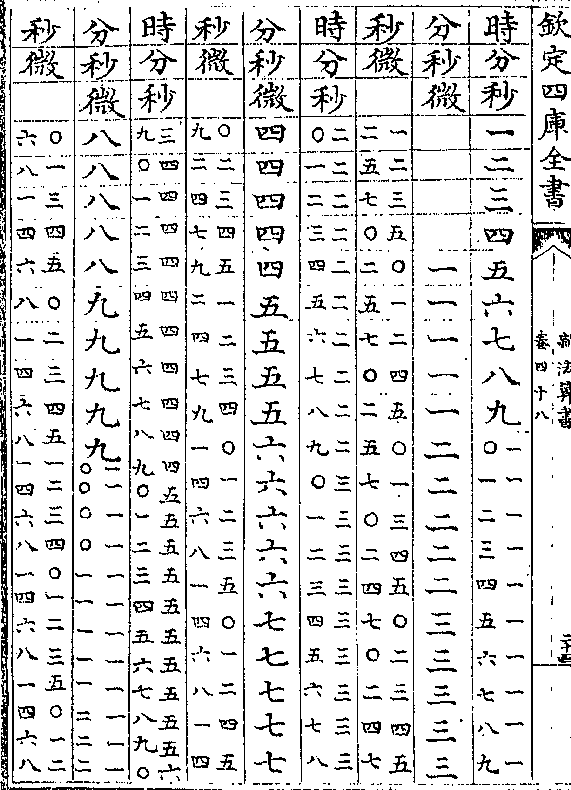 欽定四庫全書
新法算書
卷四十八
二十四
時分秒一二三四五六七八九一〇一一一二一三一四一五一六一七一八一九
分秒微一一一一一二二二二二三三三三三
秒微一二二五三七五〇〇二一五二七四〇五二〇五一七三〇四二五四〇七二〇三二四四五七
時分秒二〇二一二二二三二四二五二六二七二八二九三〇三一三二三三三四三五三六三七三八
分秒微四四四四四五五五五六六六六六七七七七七
秒微〇九二二三四四七五九一二二四三七四九〇一一四二六三八五一〇四一六二八四一五四
時分秒三九四〇四一四二四三四四四五四六四七四八四九五〇五一五二五三五四五五五六五七五八五九六〇
分秒微八八八八八九九九九九一〇一〇一〇一〇一一一一一一一一一一一二一二一二
秒微〇六一八三一四四五六〇八二一三四四六五八一一二四三六四八〇一一四二六三八五一〇四一六二八